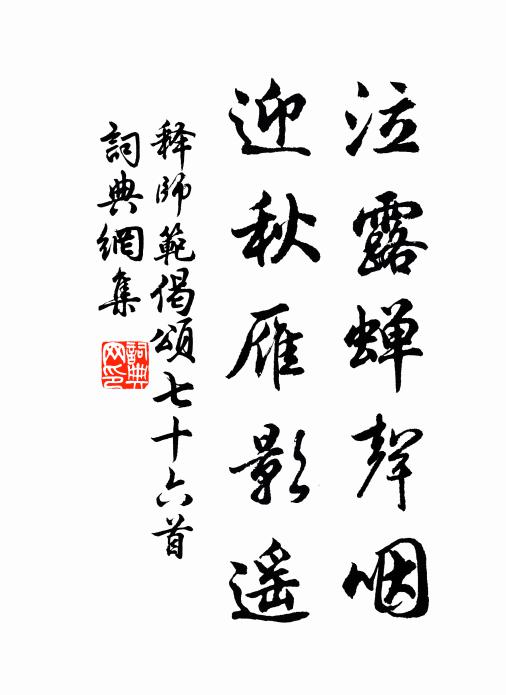 泣露蝉聲咽
迎秋雁影遥
释師範偈頌七十六首
詞典網集
詞典
网印